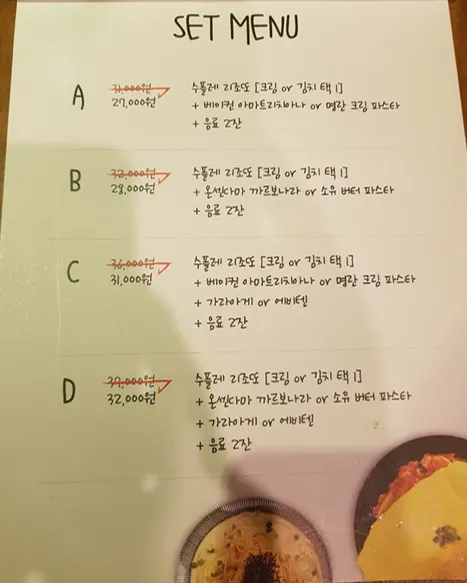 SET MENU
A
31,000원
27,000원
수플레 리조또 [크림 or 김치 택 1]
+ 베이컨 아마트리치아나 or 명란 크림 파스타
+ 음료 2잔
B
32,000원
28,000원
수플레 리조또 [크림 or 김치 택 1]
+ 온센다마 까르보나라 or 소유 버터 파스타
+ 음료 2잔
C
36,000원
31,000원
수플레 리조또 [크림 or 김치 택 1]
+ 베이컨 아마트리치아나 or 명란 크림 파스타
+ 가라아게 or 에비텐
+ 음료 2잔
D
37,000원
32,000원
수플레 리조또 [크림 or 김치 택 1]
+ 온센다마 까르보나라 or 소유 버터 파스타
+ 가라아게 or 에비텐
+ 음료 2잔